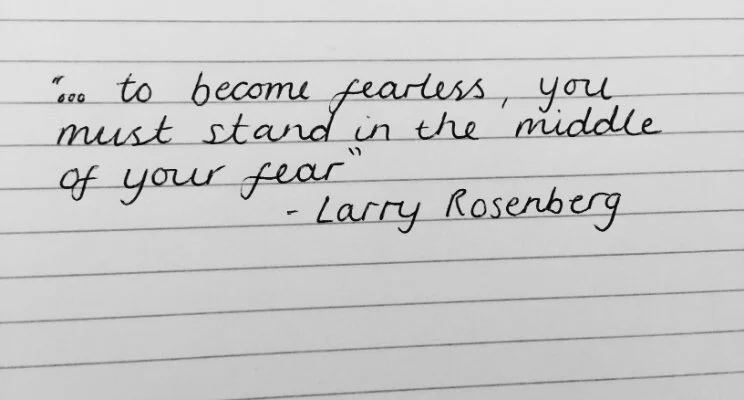 "... to become fearless, you
must stand in the middle
of your fear"
- Larry Rosenberg